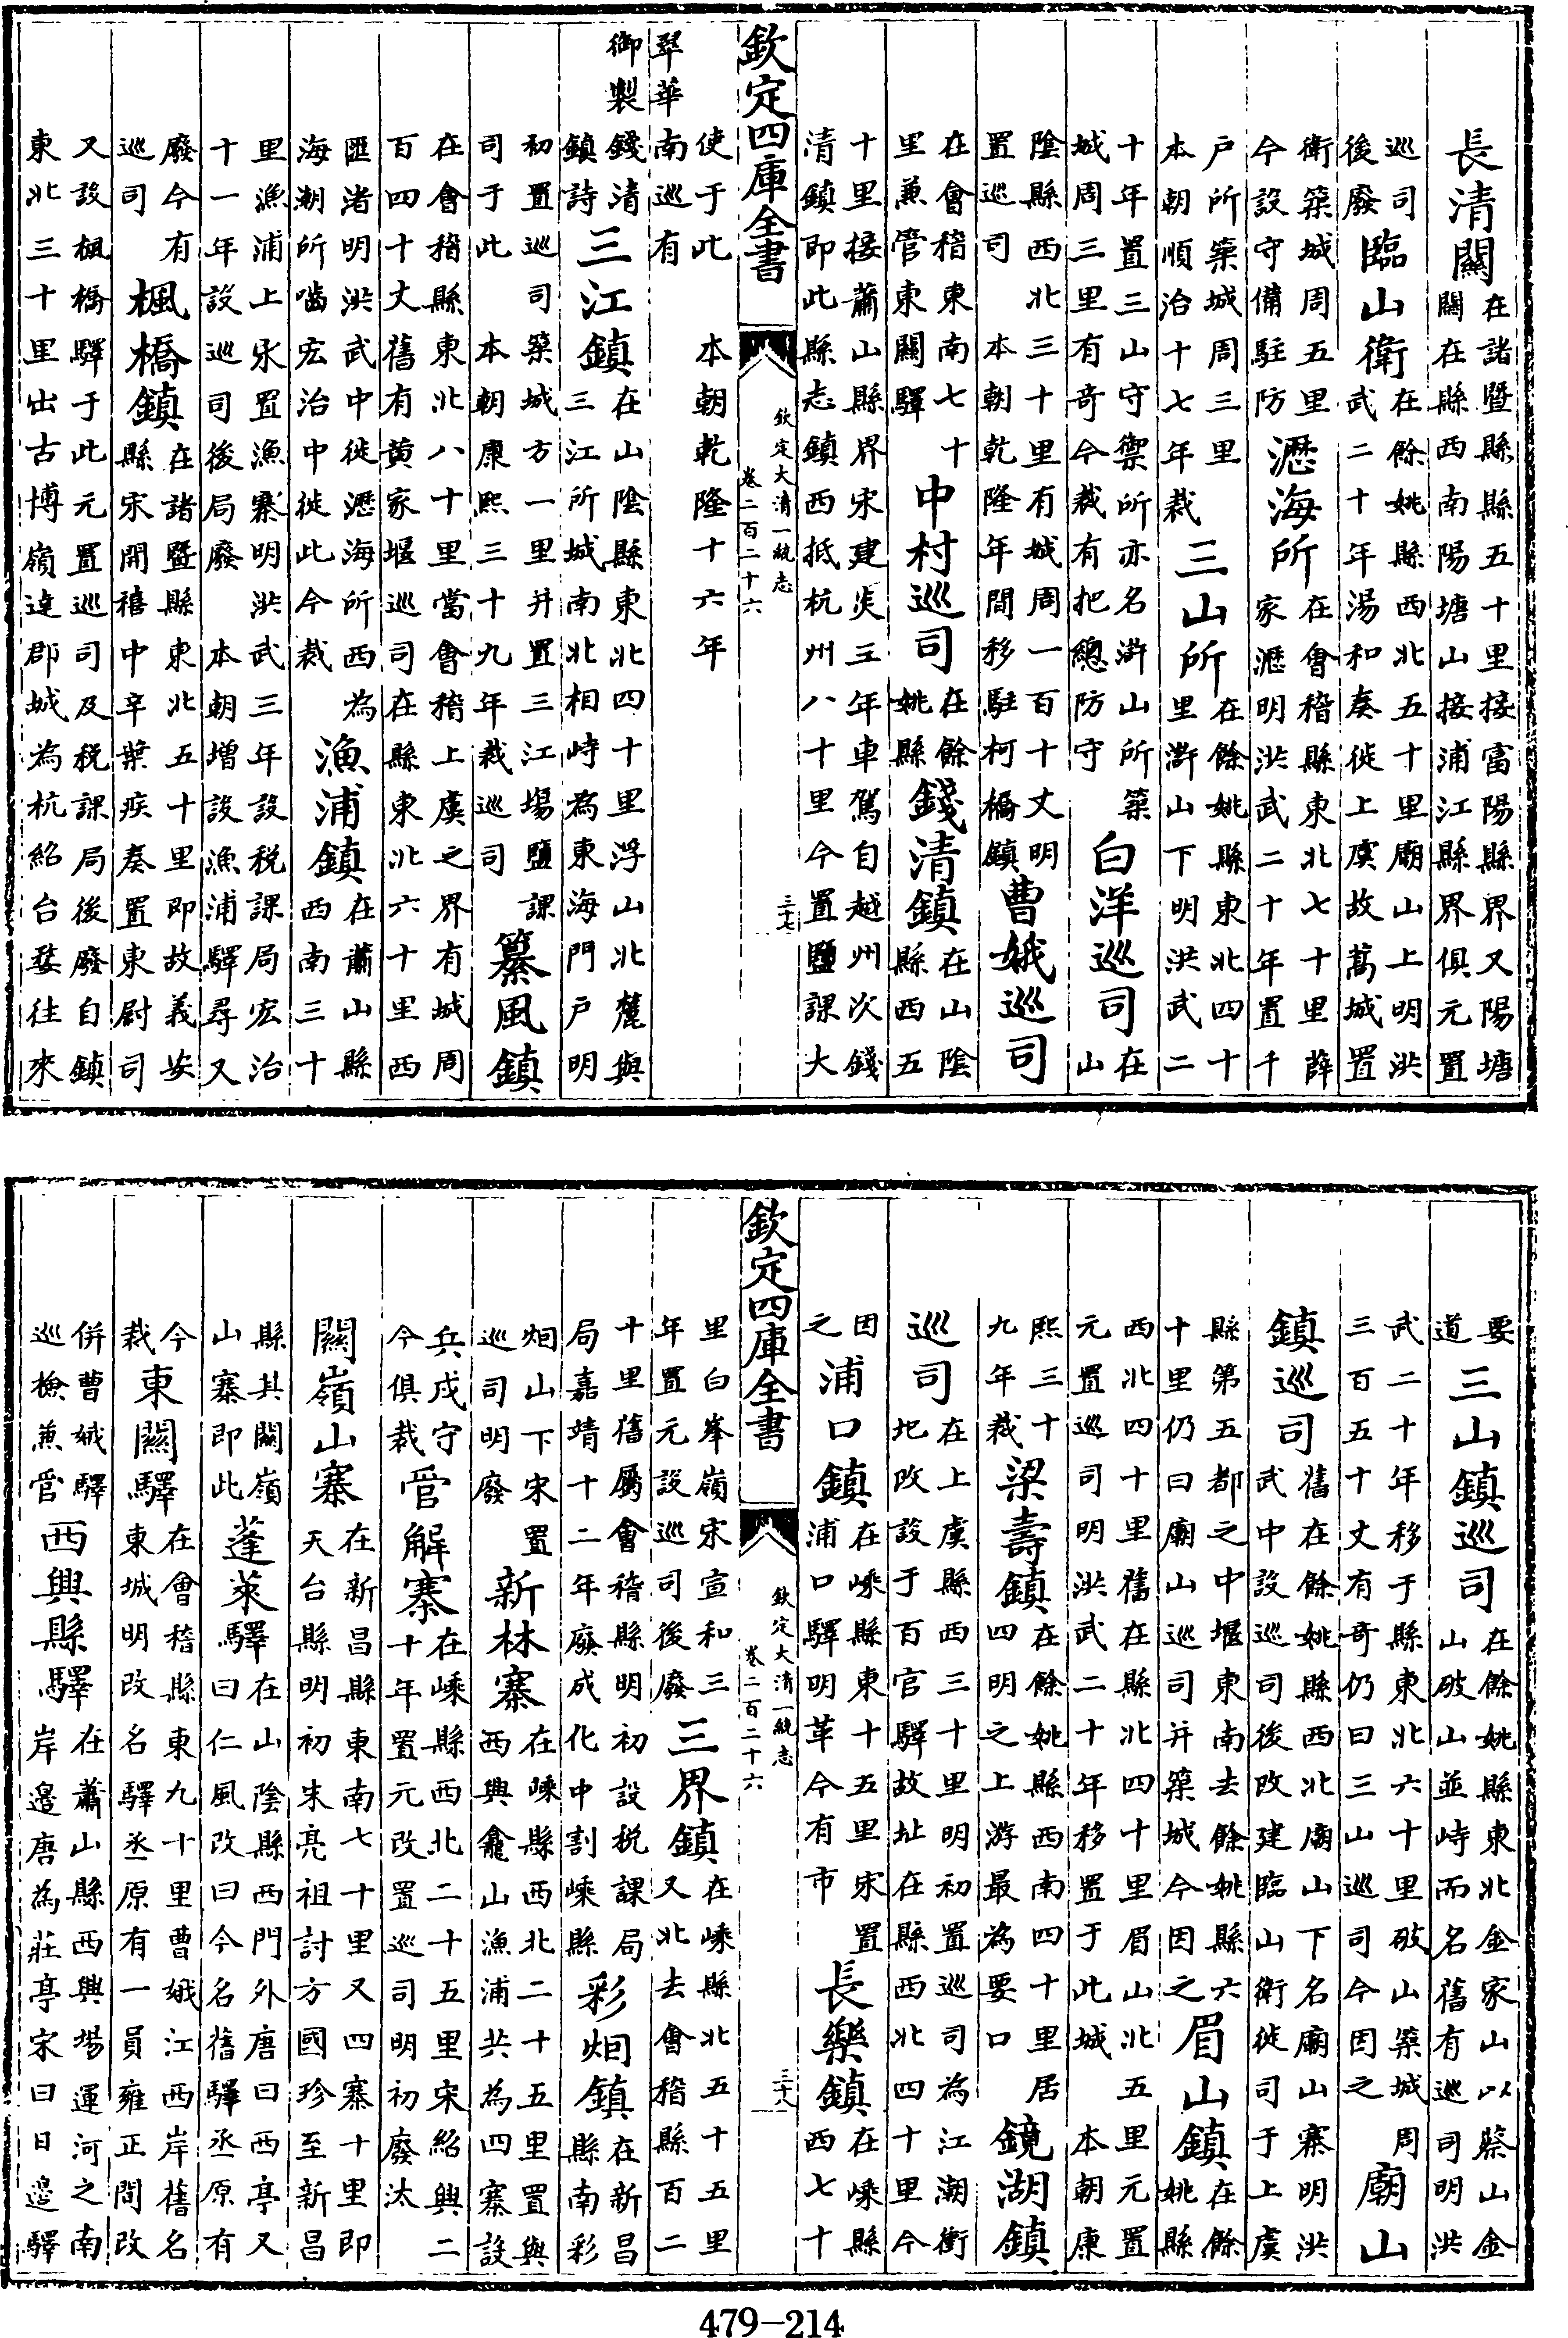 長清關在諸暨縣五十里接富陽縣界又陽塘關在縣西南陽塘山接浦江縣界俱元置
巡司後廢臨山衛在餘姚縣西北五十里廟山上明洪武二十年湯和奏徙上虞故嵩城置
衛築城周五里今設守備駐防瀝海所在會稽縣東北七十里薛家瀝明洪武二十年置千
户所築城周三里本朝順治十七年裁三山所在餘姚縣東北四十里滸山下明洪武二
十年置三山守禦所亦名滸山所築城周三里有奇今裁有把總防守白洋巡司在山
陰縣西北三十里有城周一百十丈明置巡司本朝乾隆年間移駐柯橋鎮曹娥巡司
在會稽東南七十里兼管東關驛中村巡司在餘姚縣錢清鎮在山陰縣西五
十里接蕭山縣界宋建炎三年車駕自越州次錢清鎮即此縣志鎮西抵杭州八十里今置鹽課大
欽定四庫全書 欽定大清一統志 卷二百二十六 三十七
使于此 本朝乾隆十六年翠華南巡有
御製錢清鎮詩三江鎮在山陰縣東北四十里浮山北麓與三江所城南北相峙為東海門户明
初置巡司築城方一里并置三江場鹽課司于此 本朝康熙三十九年裁巡司纂風鎮
在會稽縣東北八十里當會稽上虞之界有城周百四十丈舊有黄家堰巡司在縣東北六十里西
匯渚明洪武中徙瀝海所西為海潮所嚙宏治中徙此今裁漁浦鎮在蕭山縣西南三十
里漁浦上宋置漁寨明洪武三年設税課局宏治十一年設巡司後局廢 本朝增設漁浦驛尋又
廢今有巡司楓橋鎮在諸暨縣東北五十里即故義安縣宋開禧中辛棄疾奏置東尉司
又設楓橋驛于此元置巡司及税課局後廢自鎮東北三十里出古博嶺達郡城為杭紹台婺往來
要道三山鎮巡司在餘姚縣東北金家山以蔡山金山破山並峙而名舊有巡司明洪
武二十年移于縣東北六十里破山築城周三百五十丈有奇仍曰三山巡司今因之廟山
鎮巡司舊在餘姚縣西北廟山下名廟山寨明洪武中設巡司後改建臨山衛徙司于上虞
縣第五都之中堰東南去餘姚縣六十里仍曰廟山巡司并築城今因之眉山鎮在餘姚縣
西北四十里舊在縣北四十里眉山北五里元置元置巡司明洪武二十年移置于此城 本朝康
熙三十九年裁梁壽鎮在餘姚縣西南四十里居四明之上游最為要口鏡湖鎮
巡司在上虞縣西三十里明初置巡司為江潮衝圯改設于百官驛故址在縣西北四十里今
因之浦口鎮在嵊縣東十五里宋置浦口驛明革今有市長樂鎮在嵊縣西七十
欽定四庫全書 欽定大清一統志 卷二百二十六 三十八
里白峯嶺宋宣和三年置元設巡司後廢三界鎮在嵊縣北五十五里又北去會稽縣百二
十里舊屬會稽縣明初設税課局局嘉靖十二年廢成化中割嵊縣彩烟鎮在新昌縣南彩
烟山下宋置巡司明廢新林寨在嵊縣西北二十五里置與西興龕山漁浦共為四寨設
兵戍守今俱裁管解寨在嵊縣西北二十五里宋紹興二十年置元改置巡司明初廢汰
關嶺山寨在新昌縣東南七十里又四寨十里即天台縣明初朱亮祖討方國珍至新昌
縣其關嶺山寨即此蓬萊驛在山陰縣西門外唐曰西亭又曰仁風改曰今名舊驛丞原有
今裁東關驛在會稽縣東九十里曹娥江西岸舊名東城明改名驛丞原有一員雍正間改
併曹娥驛巡檢兼管西興縣驛在蕭山縣西興場運河之南岸邉唐為莊亭宋曰日邉驛
479-214